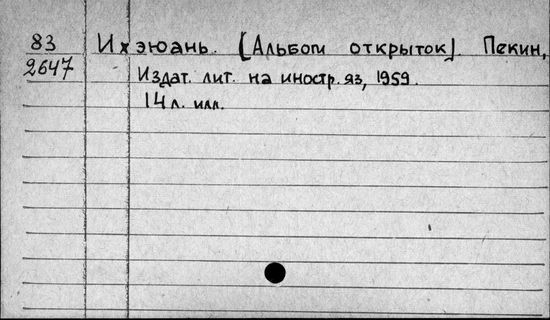 83 Ихэюань. [Альбом открыток]. Пекин,
2647 Издат. лит. на иностр. яз, 1959.
14 л. илл.